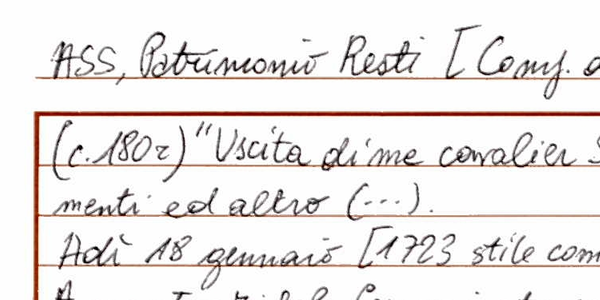 ASS, Patrimonio Resti [Comp.
(c.180r) "Uscita di me cavalier
menti ed altro (...).
Adì 18 gennaio [1723 stile com